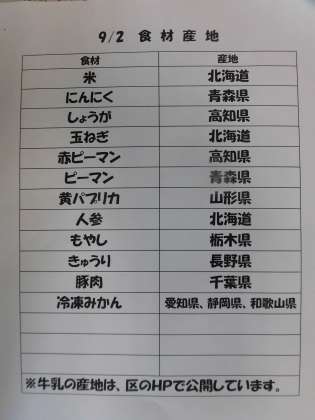 9/2 食材産地
食材 産地
米 北海道
にんにく 青森県
しょうが 高知県
玉ねぎ 北海道
赤ピーマン 高知県
ピーマン 青森県
黄パプリカ 山形県
人参 北海道
もやし 栃木県
きゅうり 長野県
豚肉 千葉県
冷凍みかん 愛知県、静岡県、和歌山県
※牛乳の産地は、区のHPで公開しています。